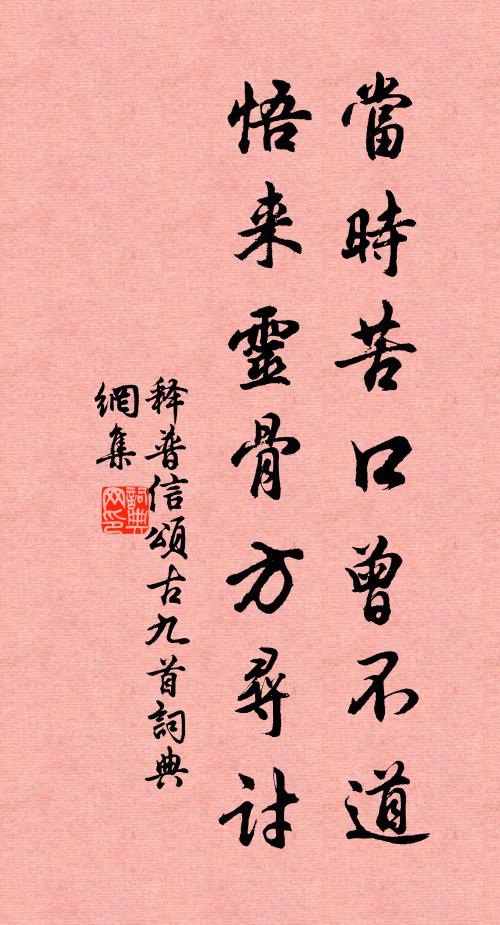 當時苦口曾不道
悟来靈骨方尋討
释普信頌古九首詞典
網集
詞典网印